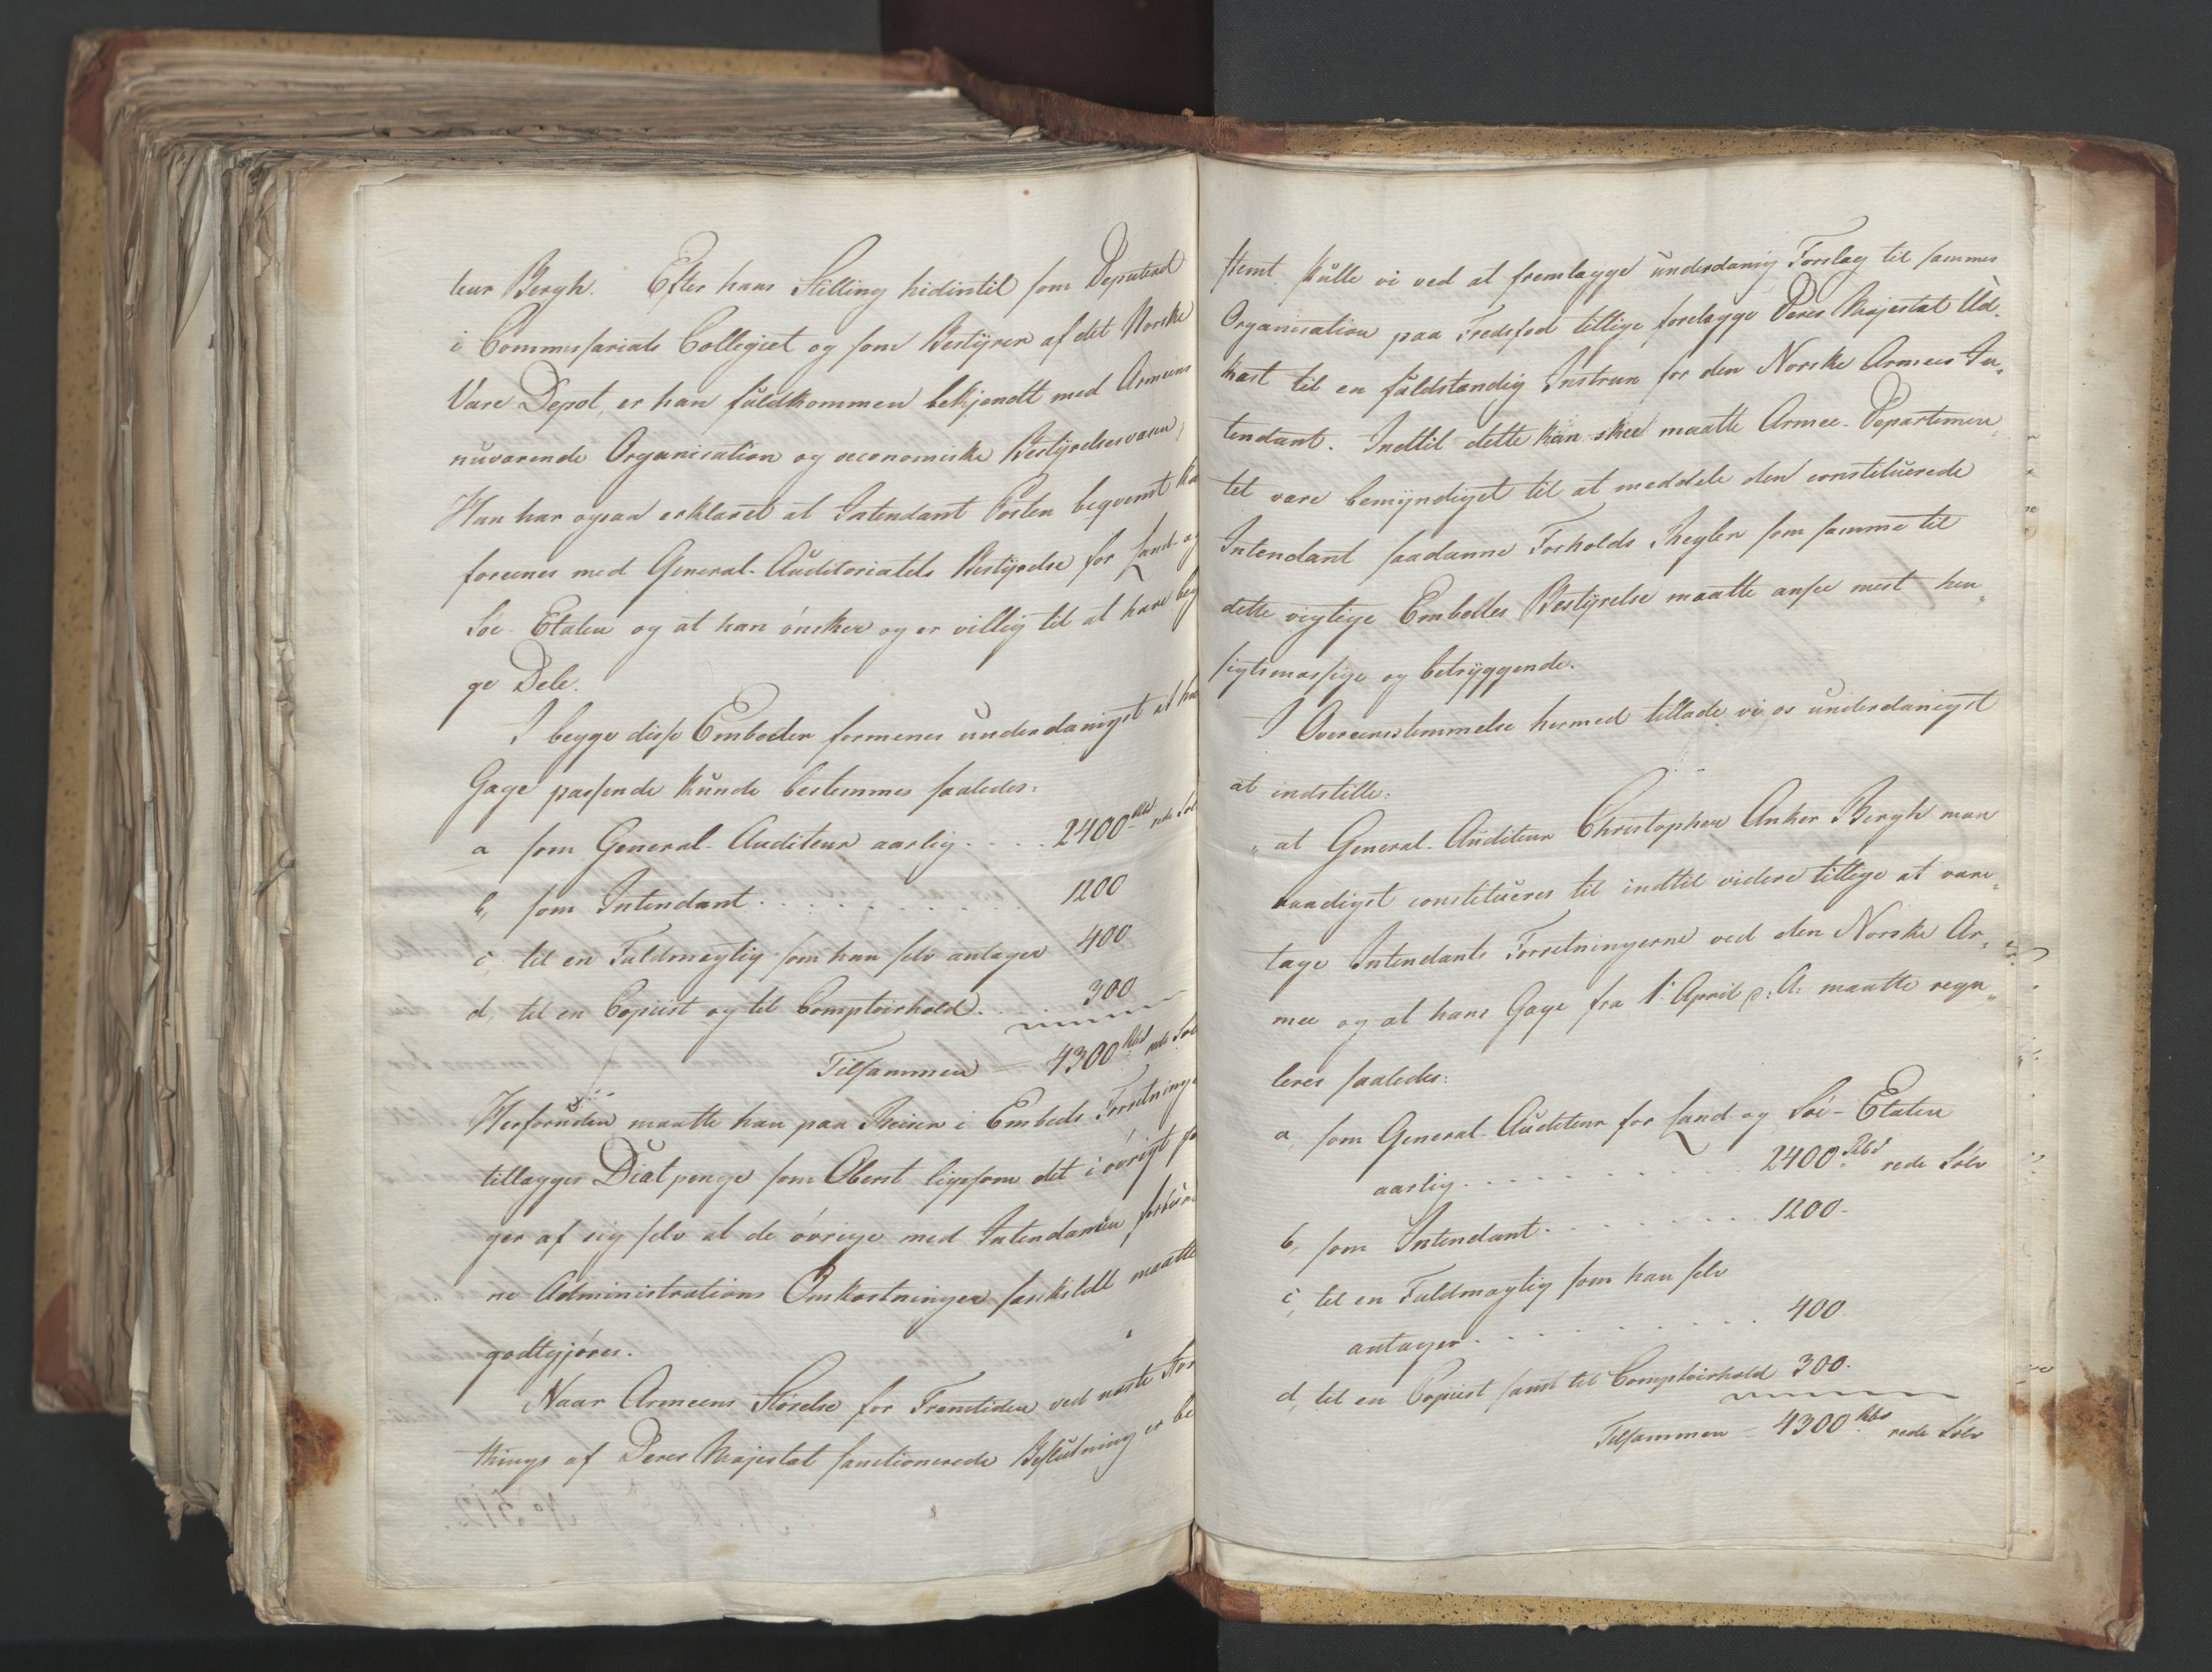 teur Bergh. Efter hans Stilling hidintil som Deputered
i Commissariats Collegiet og som Bestyrer af det Norske
Vare Depot, er han fuldkommen bekjendt med Armeens
nuværende Organisation og oeconomiske Bestyrelsesvæsen,
Han har ogsaa erklæret at Intendant Posten beqvemt ka
foreenes med General-Auditoriatets Bestyrelse for Land- og
Søe-Etaten og at han ønsker og er villig til at have beg
ge Dele.
I begge disse Embeder formenes underdanigst at ha
Gage passende kunde bestemmes saaledes:
a som General-Auditeur aarlig . . . . 2400 Rbd rede Søl
b, som Intendant . . . . . . . . 1200
c, til en Fuldmægtig som han selv antager 400
d, til en Copiist og til Comptoirhold. 300
Tilsammen – 4300 Rbd rede Søl
Herforuden maatte han paa Reiser i Embeds Forretninge
tillægges Diætpenge som Oberst ligesom det i øvrigt fø
ger af sig selv at de øvrige med Intendancen forbun
ne Administrations Omkostninger særskildt maatte
godtgjøres.
Naar Armeens Størelse for Fremtiden ved næste Stor
things af Deres Majestæt sanctionerede Beslutning er be
stemt, skulle vi ved at fremlægge underdanig Forslag til sammes
Organisation paa Fredsfod tillige forelægge Deres Majestæt Ud-
kast til en fuldstændig Instrux for den Norske Armees In-
tendant. Indtil dette kan skee maatte Armee-Departemen-
tet være bemyndiget til at meddele den constituerede
Intendant saadanne Forholds Regler som samme til
dette vigtige Embedes Bestyrelse maatte ansee mest hen-
sigtsmæssige og betryggende.
I Overeensstemmelse hermed tillade vi os underdanigst
at indstille:
„at General-Auditeur Christopher Anker Bergh maa
naadigst constitueres til indtil videre tillige at vare-
tage Intendants Forretningerne ved den Norske Ar-
mee og at hans Gage fra 1ste April d: A: maatte regu-
leres saaledes:
a, som General-Auditeur for Land- og Søe-Etaten
aarlig . . . . . . . . 2400 Rbd rede Sølv
b, som Intendant . . . . . . . 1200.
c, til en Fuldmægtig som han selv
antager . . . . . . . . . 400.
d, til en Copiist samt til Comptoirhold 300.
Tilsammen – 4300 Rbd rede Sølv